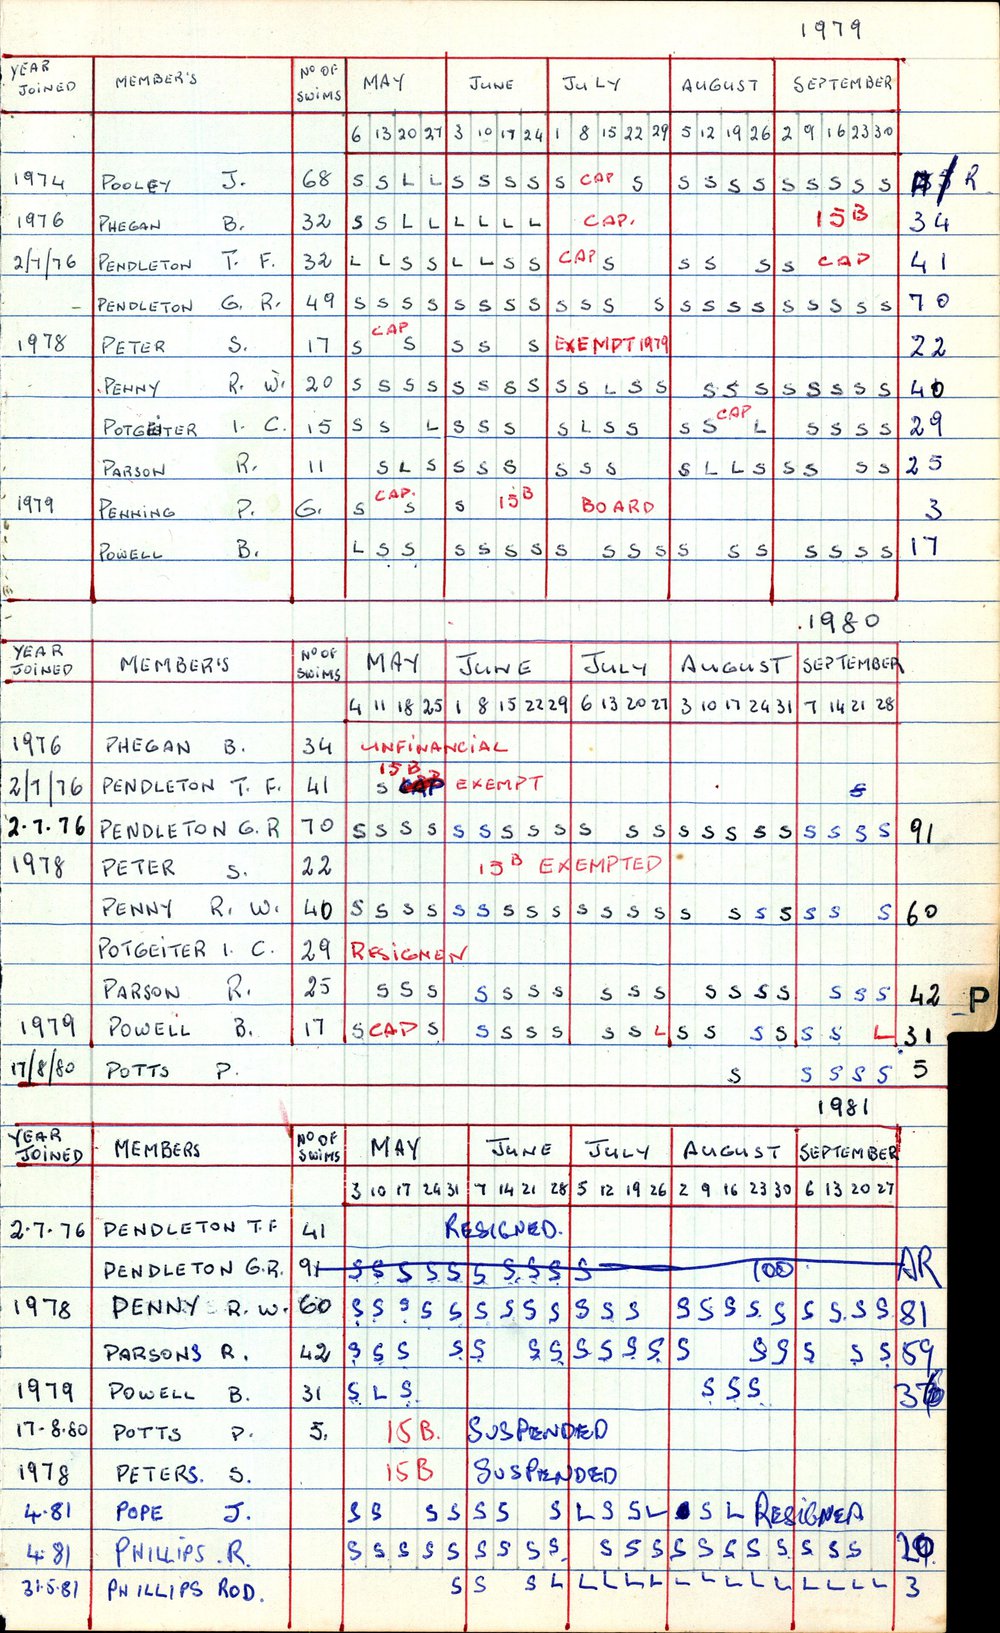 1979
YEAR JOINED MEMBER'S Nº OF SWIMS MAY JUNE JULY AUGUST SEPTEMBER
6 13 20 27 3 10 17 24 1 8 15 22 29 5 12 19 26 2 9 16 23 30
1974 POOLEY J. 68 S S L L S S S S S CAP S S S S S S S S S S R
1976 PHEGAN B. 32 S S L L L L L L CAP. 15B 34
2/7/76 PENDLETON T. F. 32 L L S S L L S S CAP S S S S S CAP 41
- PENDLETON G. R. 49 S S S S S S S S S S S S S S S S S S S S S 70
1978 PETER S. 17 S CAP S S S S EXEMPT 1979 22
PENNY R. W. 20 S S S S S S S S S S L S S S S S S S S S S 40
POTGEITER I. C. 15 S S L S S S S L S S S S CAP L S S S S 29
PARSON R. 11 S L S S S S S S S S L L S S S S S 25
1979 PENNING P. G. S CAP. S S 15B BOARD 3
POWELL B. L S S S S S S S S S S S S S S S S S 17
.1980
YEAR JOINED MEMBER'S Nº OF SWIMS MAY JUNE JULY AUGUST SEPTEMBER
4 11 18 25 1 8 15 22 29 6 13 20 27 3 10 17 24 31 7 14 21 28
1976 PHEGAN B. 34 UNFINANCIAL
2/7/76 PENDLETON T. F. 41 S 15B CAP EXEMPT S
2.7.76 PENDLETON G.R 70 S S S S S S S S S S S S S S S S S S S S S 91
1978 PETER S. 22 15B EXEMPTED
PENNY R. W. 40 S S S S S S S S S S S S S S S S S S S S 60
POTGEITER I. C. 29 RESIGNEN
PARSON R. 25 S S S S S S S S S S S S S S S S S 42
P
1979 POWELL B. 17 S CAP S S S S S S S L S S S S S S L 31
17/8/80 POTTS P. S S S S S 5
1981
YEAR JOINED MEMBERS Nº OF SWIMS MAY JUNE JULY AUGUST SEPTEMBER
3 10 17 24 31 7 14 21 28 5 12 19 26 2 9 16 23 30 6 13 20 27
2.7.76 PENDLETON T.F 41 RESIGNED.
PENDLETON G.R. 91 S S S S S S S S S S 100 AR
1978 PENNY R. W. 60 S S S S S S S S S S S S S S S S S S S S S 81
PARSONS R. 42 S S S S S S S S S S S S S S S S S S 59
1979 POWELL B. 31 S L S S S S
17-8-80 POTTS P. 5. 15B. SUSPENDED
1978 PETERS. S. 15B SUSPENDED
4.81 POPE J. S S S S S S S L S S L S L RESIGNED
4.81 PHILLIPS. R. S S S S S S S S S S S S S S S S S S S S
31.5.81 PHILLIPS ROD. S S S L L L L L L L L L L L L L L 3